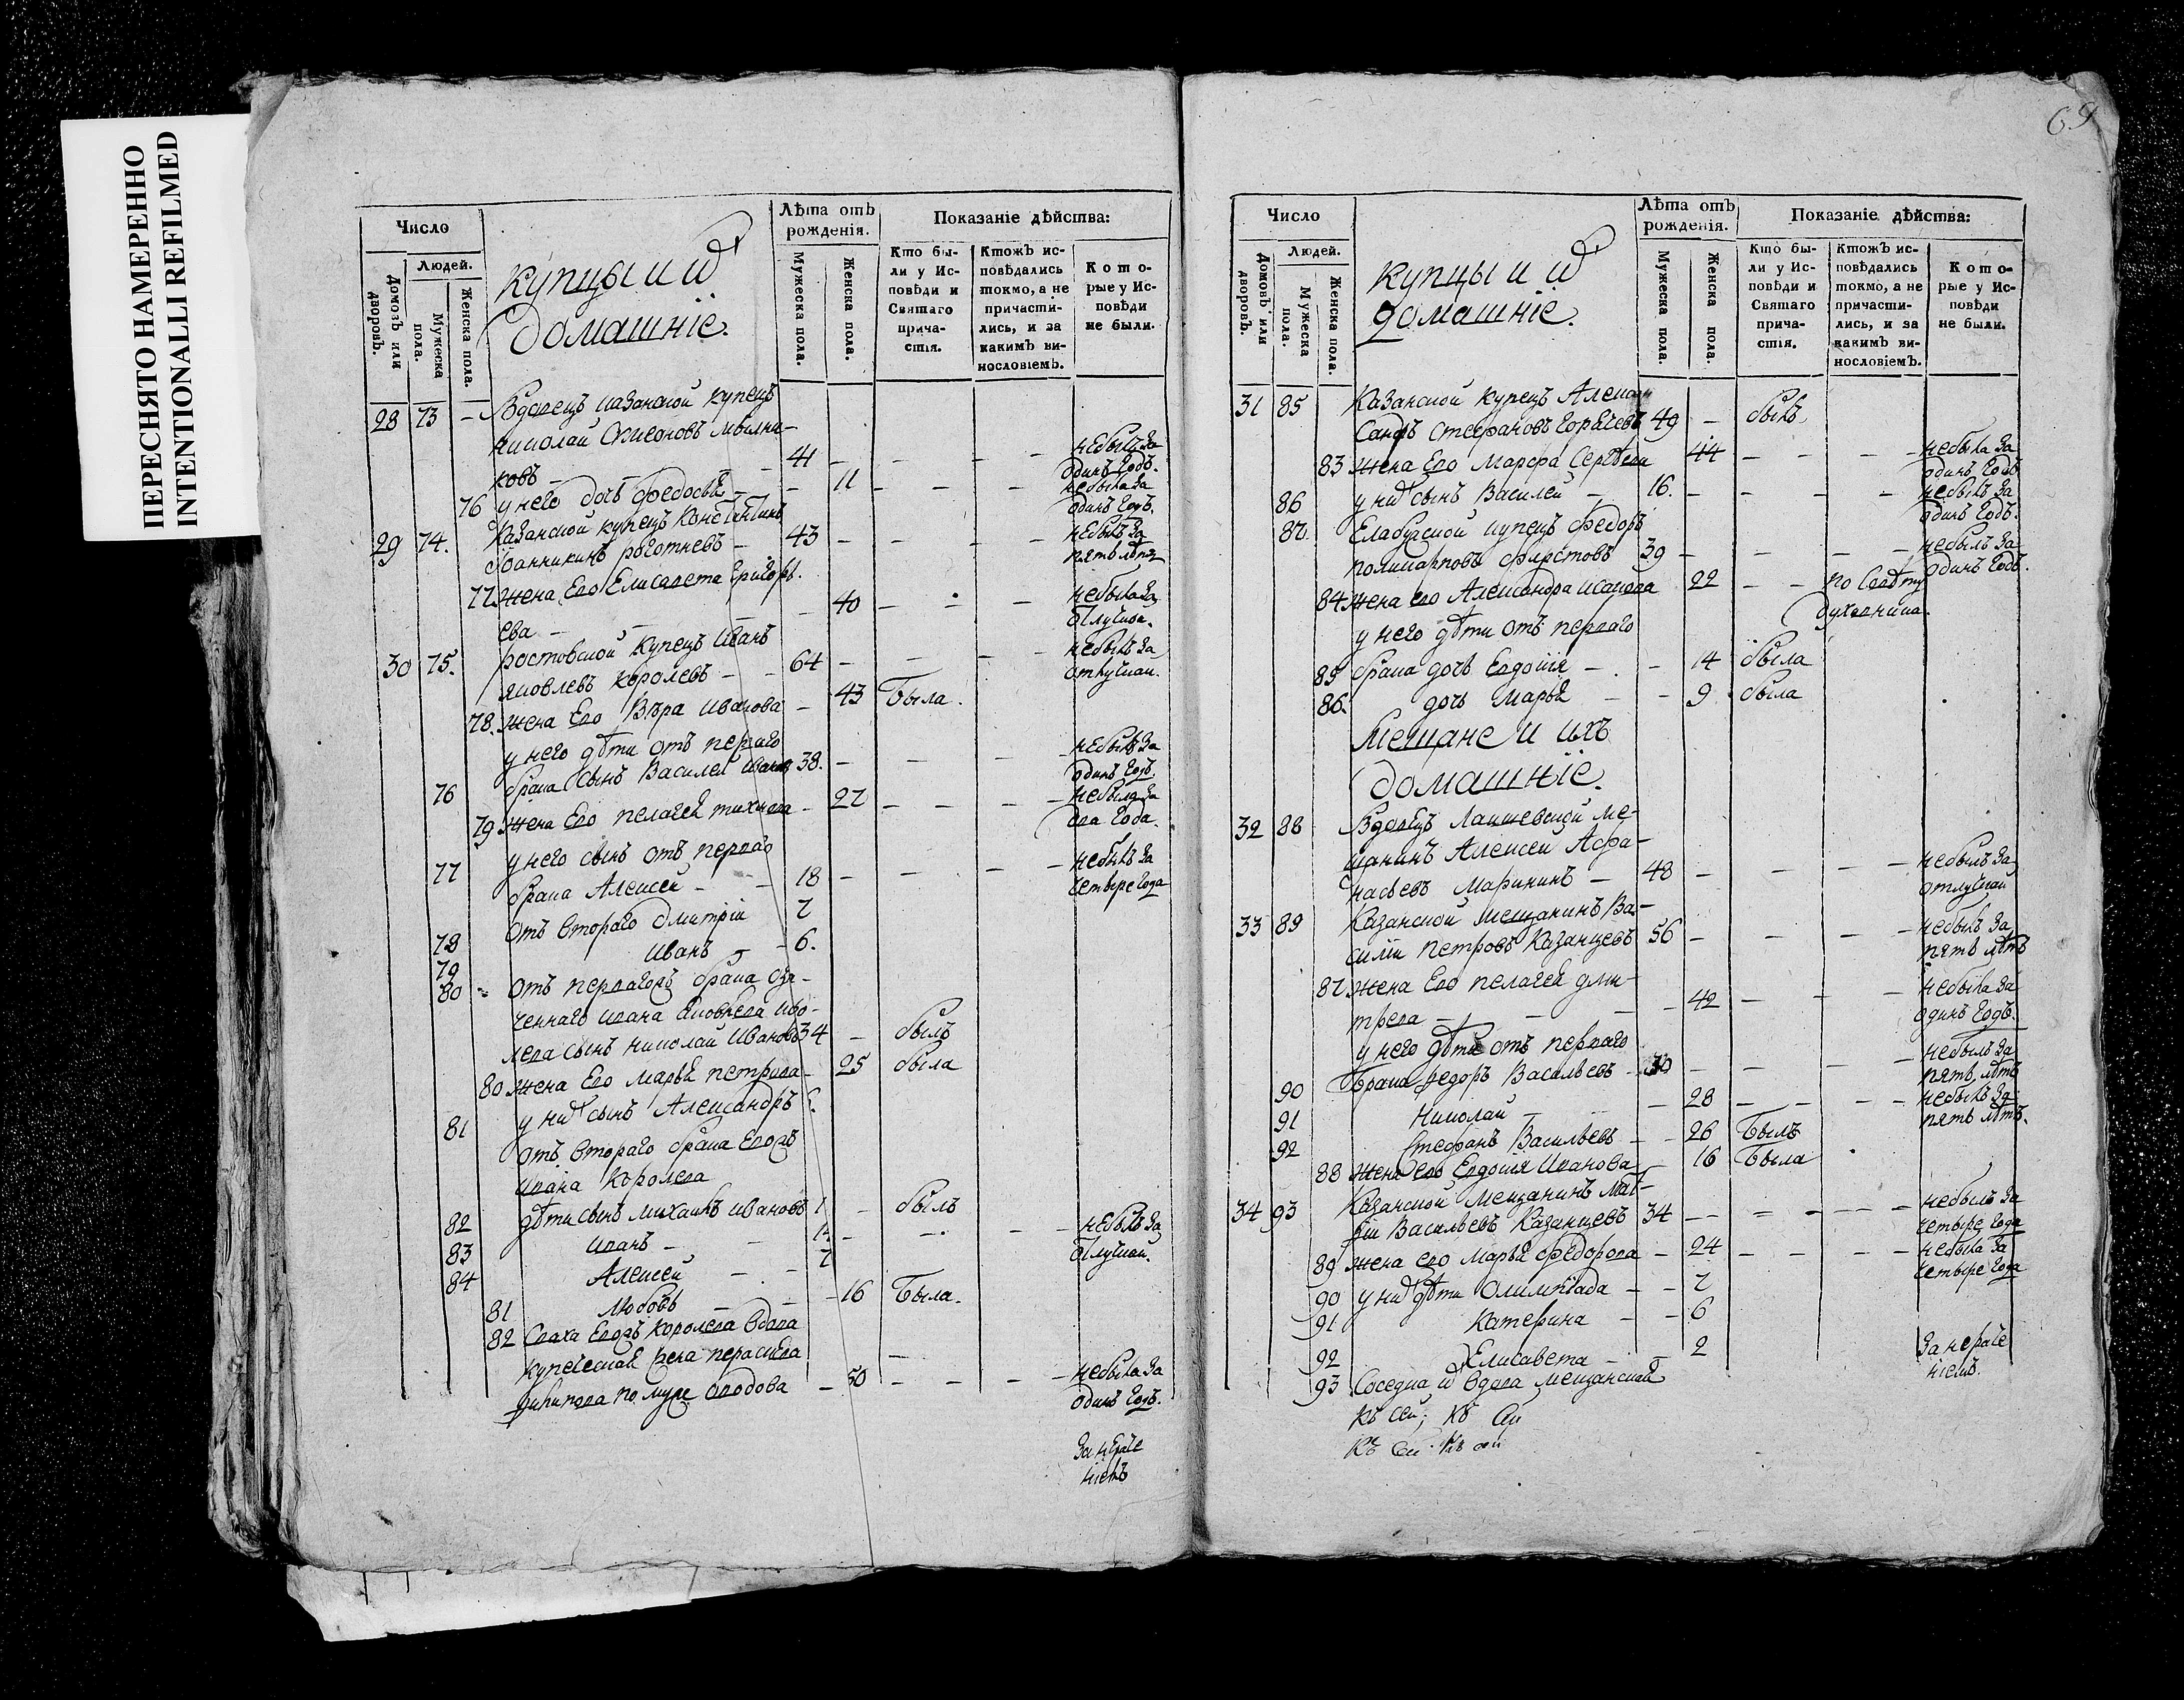 ПЕРЕСНЯТО НАМЕРЕННО
INTENTIONALLI REFILMED
Число
Лѣта отъ рожденія.
Показаніе дѣйства:
Домовъ или дворовъ.
Людей.
Мужеска пола.
Женска пола.
купцы и и̃
домашніе.
Мужеска пола.
Женска пола.
Кто были у Исповѣди и Святаго причастія.
Ктожъ исповѣдались токмо, а не причастились, и за какимъ винословіемъ.
Которые у Исповѣди не были.
28 73 – Вдовецъ казанской купецъ
николай Мѣлни-
ковъ – 41 – – – небылъ за одинъ годъ.
76 у него дочь федосья – 11 – – – небыла за одинъ годъ.
29 74. Казанской купецъ Константинъ
Іоанникинъ роготневъ – 43 – – – небылъ за пять лѣтъ
77 жена Его Елисавета григорь-
ева – – 40 – – – небыла за отлучкою.
30 75. ростовской купецъ Иванъ
яковлевъ королевъ – – 64 – – – небылъ за отлучкою.
78. жена Его Вѣра Иванова – 43 Была.
у него дѣти отъ перваго
76 брака сынъ Василей Ивановъ 38. – – – небылъ за одинъ годъ.
79 жена Его пелагея – 27 – – – небыла за два года.
у него сынъ отъ перваго
77 брака Алексей – – 18 – – – небылъ за четыре года
78 отъ втораго дмитрій 7
79 Иванъ – 6.
80 отъ перваго брака
ченнаго ивана яковлева коро-
лева сынъ николай Ивановъ 34 – былъ
80 жена Его марья петрова – 25 была
81 у ни̃ сынъ Александръ
отъ втораго брака Егожъ
ивана Королева
82 дѣти сынъ михаилъ ивановъ – былъ
83 иванъ – – – – – небылъ за отлучкою.
84 Алексей – – 7
81 любовь – – – 16 Была.
82 Сваха Егожъ королева вдова
купеческая жена
филипова по муже – 50 – – – небыла за одинъ годъ.
69
Число
Лѣта отъ рожденія.
Показаніе дѣйства:
Домовъ или дворовъ.
Людей.
Мужеска пола.
Женска пола.
купцы и и̃
домашніе.
Мужеска пола.
Женска пола.
Кто были у Исповѣди и Святаго причастія.
Ктожъ исповѣдались токмо, а не причастились, и за какимъ винословіемъ.
Которые у Исповѣди не были.
31 85 Казанской купецъ Алексан
Сандръ стефановъ горячевъ 49 – былъ
83 жена Его Марфа Сергѣева 44 – – – небыла за одинъ годъ
86 у ни̃ сынъ Василей – 16. – – – небылъ за одинъ годъ.
87. Елабугской купецъ федоръ
поликарповъ 39 – – – небылъ за одинъ годъ.
84 жена его Александра исакова 22 – – по совѣту духовника.
у него дѣти отъ перваго
85 брака дочь Евдокія – – 14 была
86. дочь Марья – – 9 была
Мещане и ихъ
домашніе.
32 88 Вдовецъ Лаишевской ме-
щанинъ Алексей Афа-
насьевъ Марининъ – 48 – – – небылъ за отлучкой
33 89 Казанской мещанинъ Ва-
силій Петровъ Казанцевъ 56 – – – небылъ за пять лѣтъ
87 жена Его пелагея дми-
трева – – – 42 – – – небыла за одинъ годъ.
у него дѣти отъ перваго
90 Брака федоръ Васильевъ – 30 – – – небылъ за пять лѣтъ
91 Николай – – 28 – – – небылъ за пять лѣтъ.
92 Стефанъ Васильевъ – – 26 Былъ
88 жена его Евдокія Иванова – 16 Была
34 93 Казанской Мещанинъ Мат-
ѳій Васильевъ Казанцевъ 34 – – – небылъ за четыре года
89 жена его марья федорова – 24 – – – небыла за четыре года
90 у ни̃ дѣти Олимпіада – – 7
91 Катерина – – 6
92 Елисавета – – 2
93 Соседка и̃ вдова мещанская